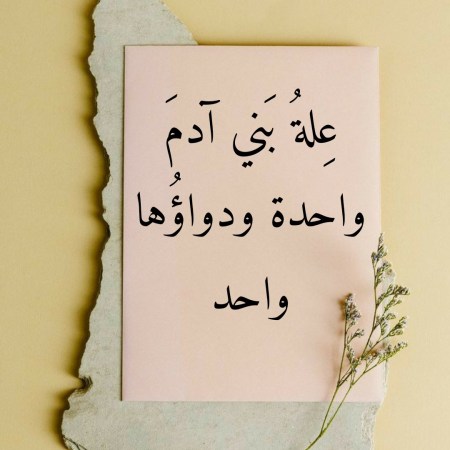 عِلةُ بَني آدمَ
واحدة ودواؤُها
واحد